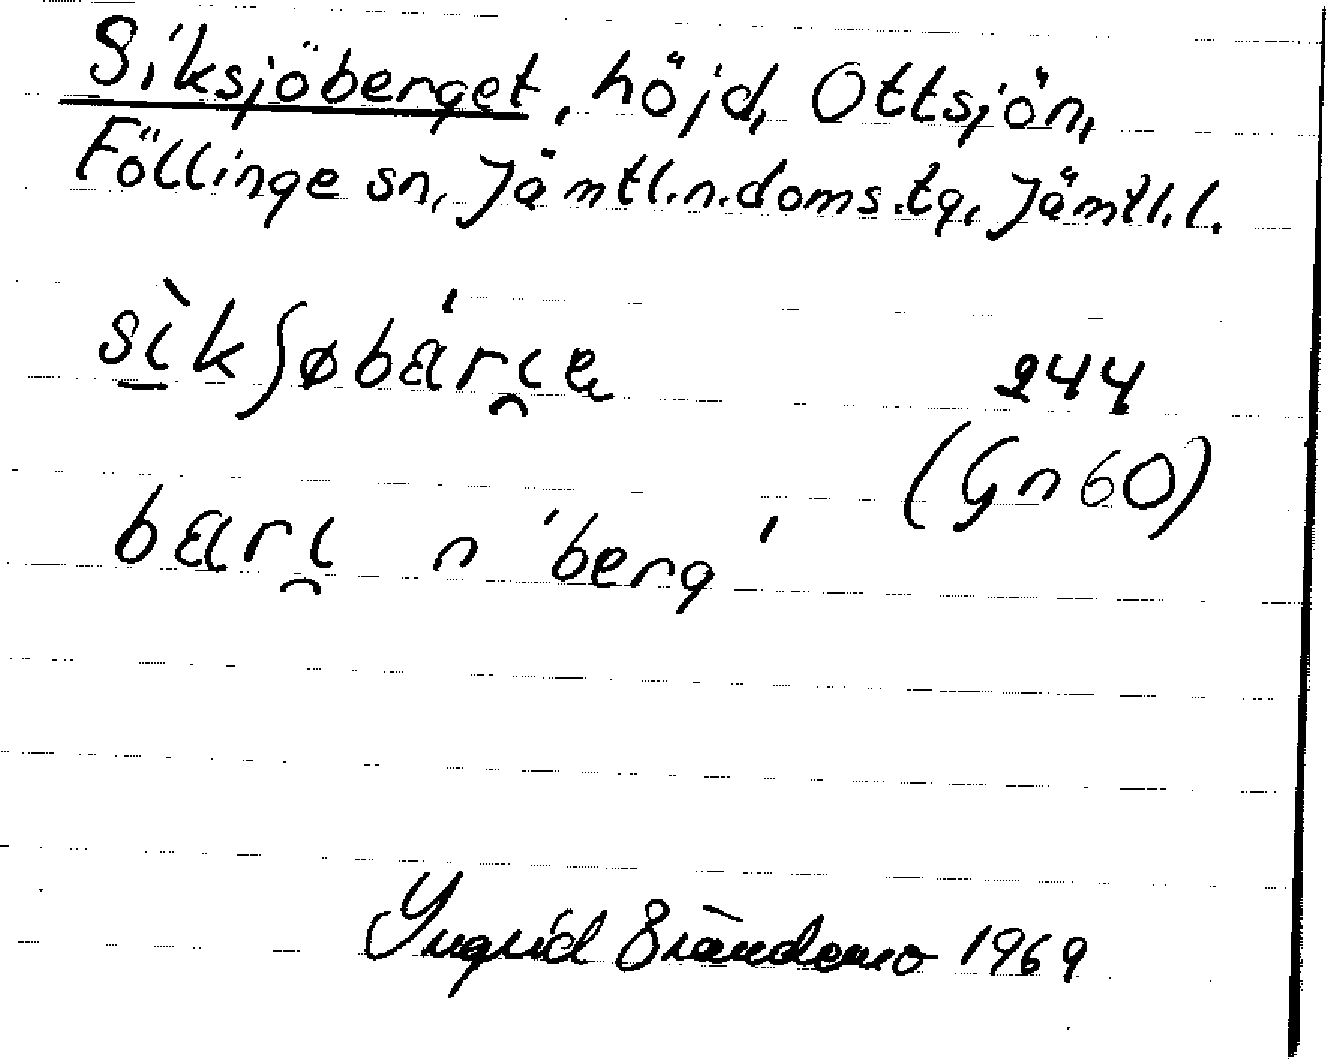 Siksjöberget, höjd, Ottsjön,
Föllinge sn, Jämtl.n.doms.tg, Jämtl.l.
sìkʃøbǽrı̯e 244
(Gn 60)
bærı̯ n 'berg'
Yngrid Brändemo 1969